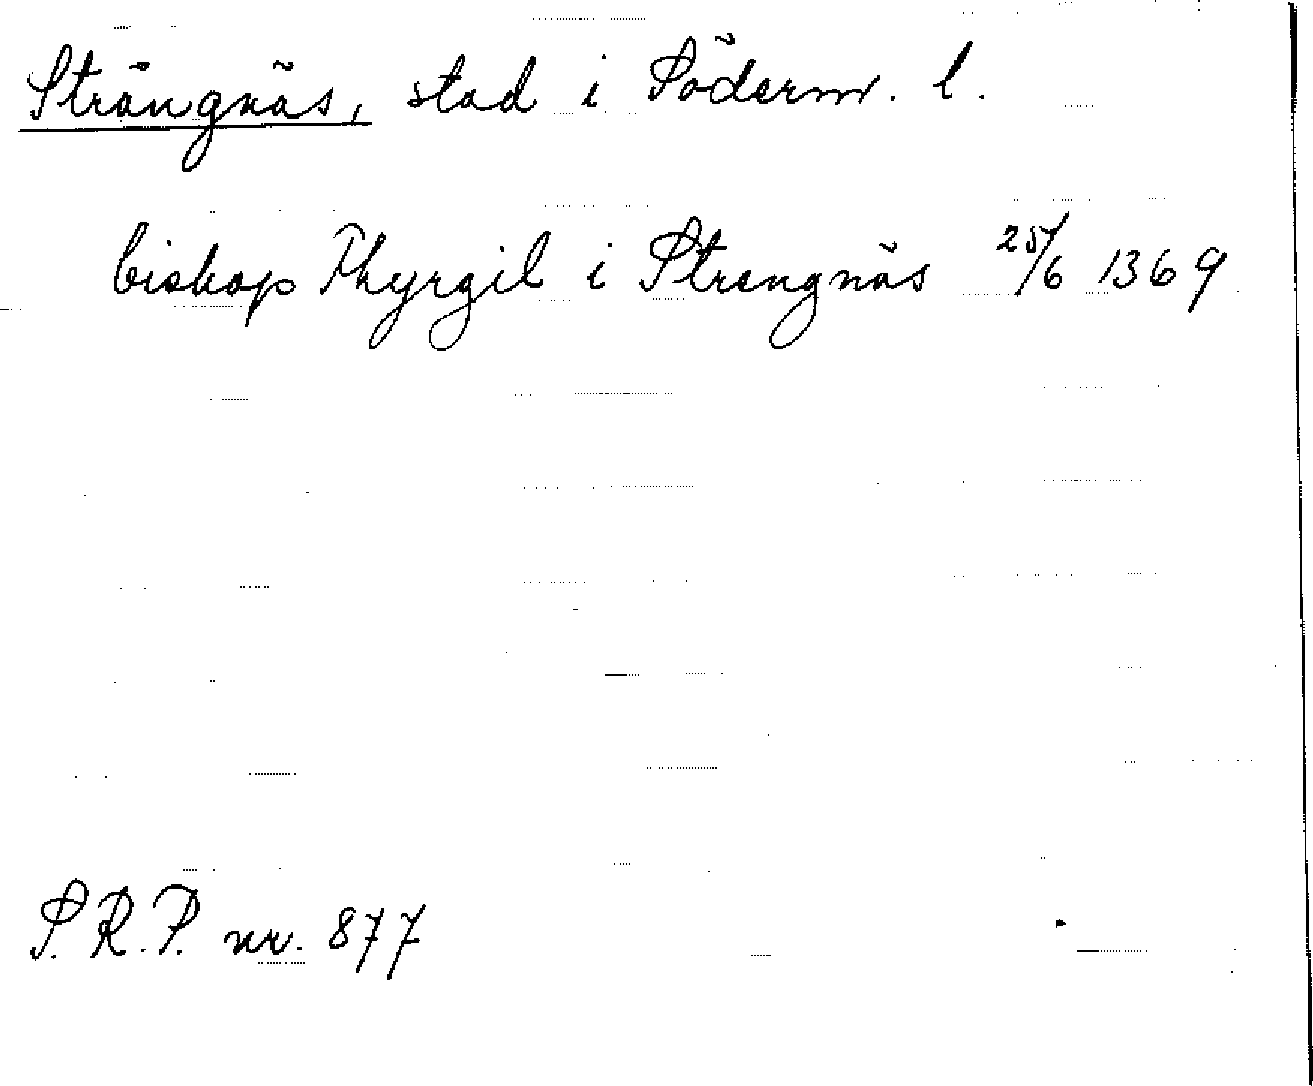 Strängnäs, stad i Söderm. l.
biskop Thyrgil i Strengnäs 25/6 1369
S.R.P. nr. 877